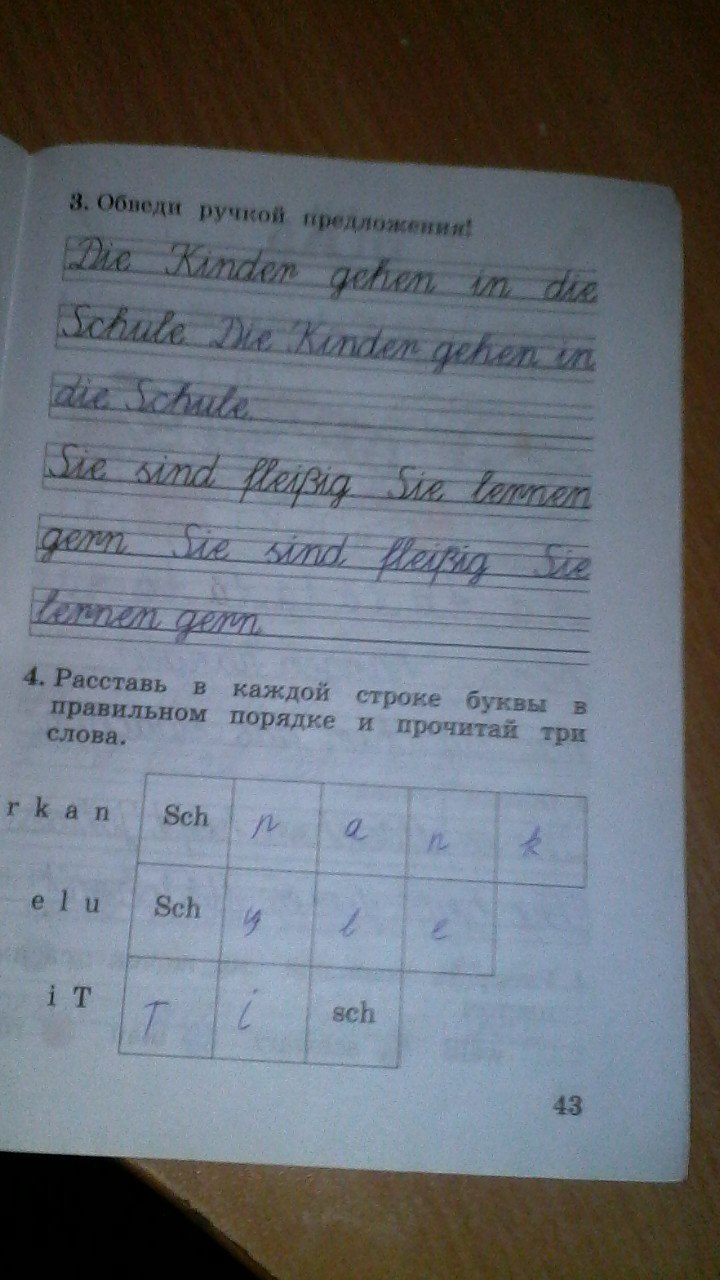 3. Обведи ручкой предложения!
Die Kinder gehen in die
Schule Die Kinder gehen in
die Schule
Sie sind fleißig Sie lernen
gern Sie sind fleißig Sie
lernen gern
4. Расставь в каждой строке буквы в
правильном порядке и прочитай три
слова.
r k a n Sch r a n k
e l u Sch u l e
i T T i sch
43